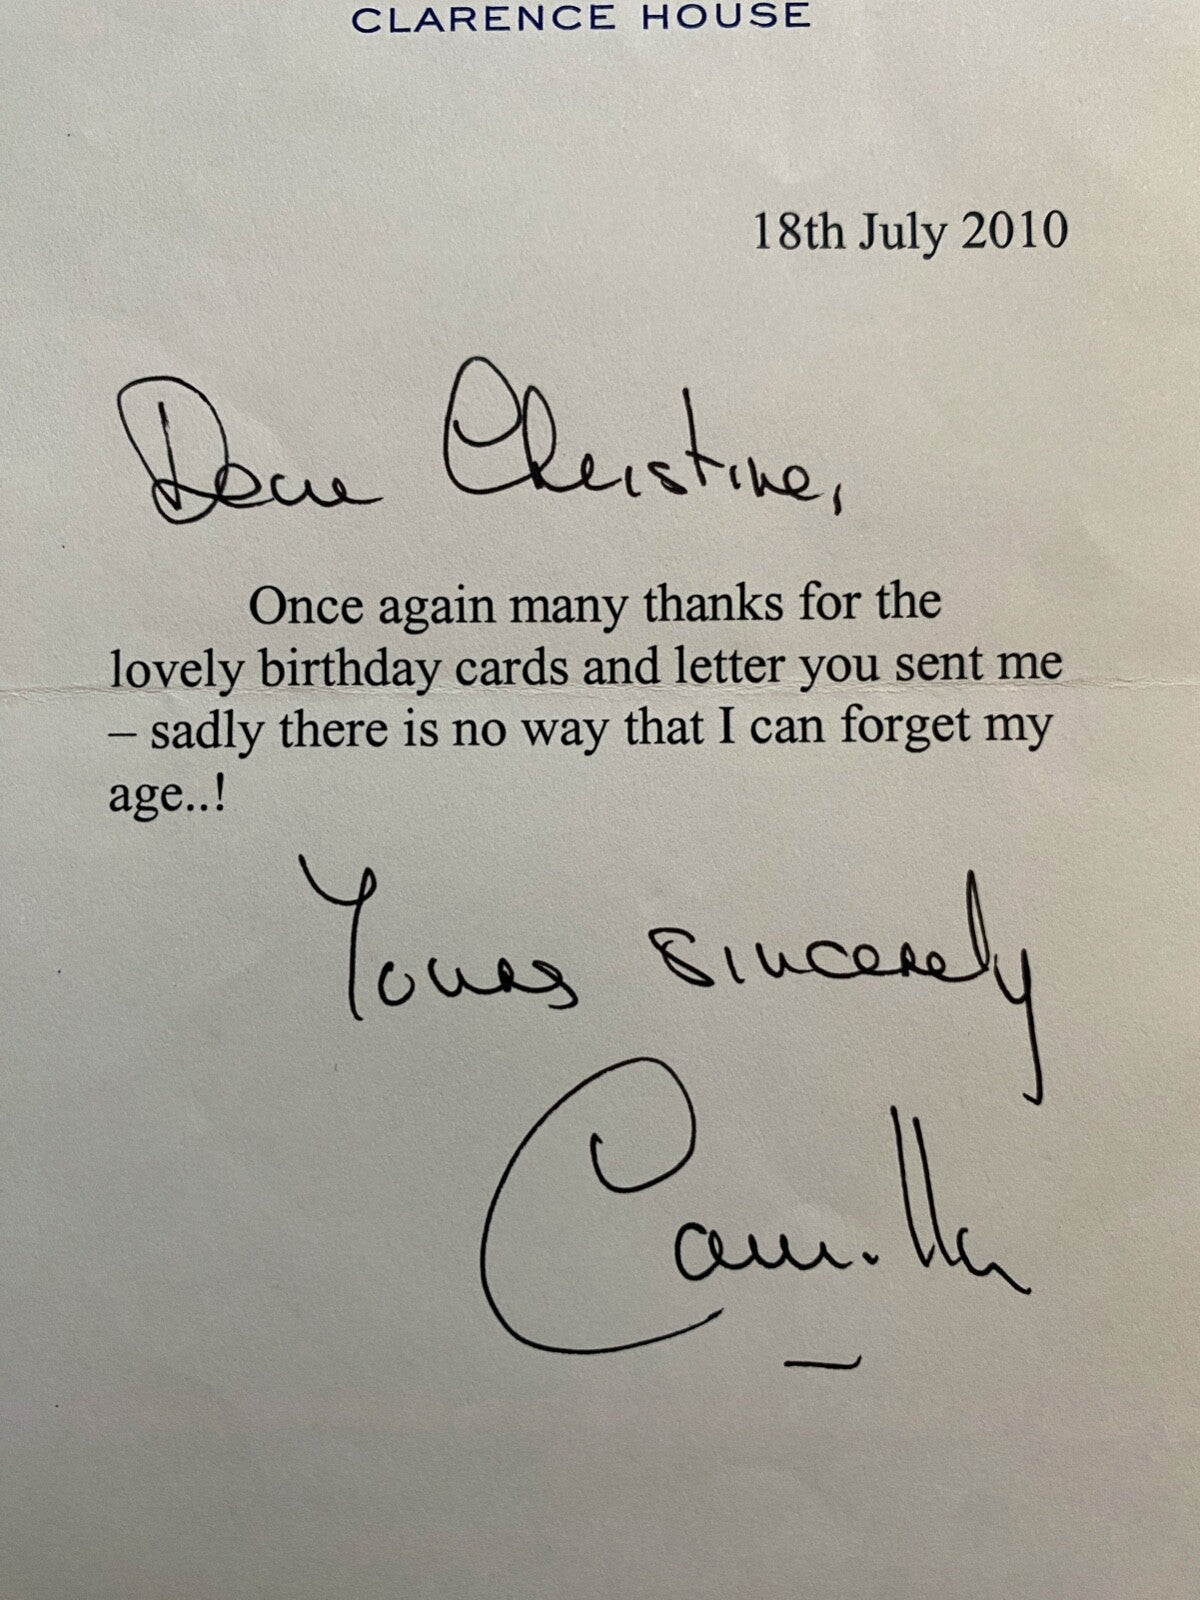 CLARENCE HOUSE
18th July 2010
Dear Christine,
Once again many thanks for the
lovely birthday cards and letter you sent me
– sadly there is no way that I can forget my
age..!
Yours sincerely
Camilla